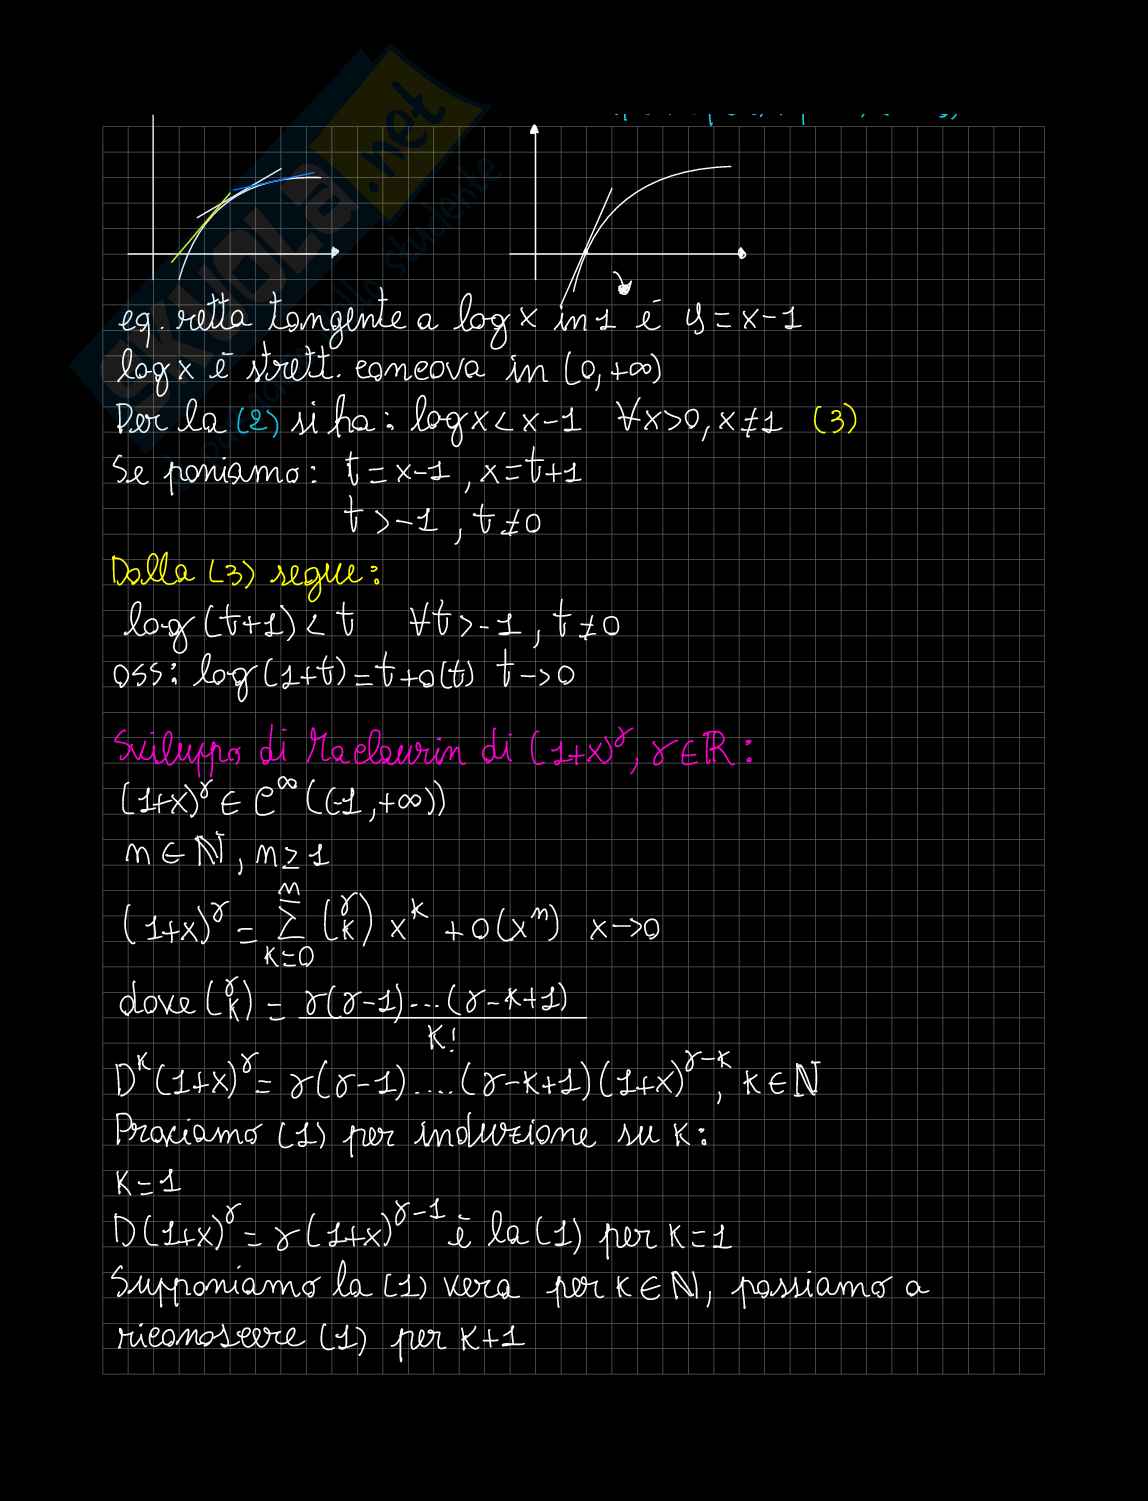 SKUOLA.net
eq. retta tangente a log x in 1 è y = x-1
log x è strett. concava in (0,+∞)
Per la (2) si ha: log x < x-1 ∀x>0, x≠1 (3)
Se poniamo: t = x-1 , x = t+1
t > -1 , t ≠ 0
Dalla (3) segue:
log (t+1) < t ∀t > -1 , t ≠ 0
oss: log (1+t) = t + o(t) t -> 0
Sviluppo di Maclaurin di (1+x)^γ, γ ∈ ℝ:
(1+x)^γ ∈ C^∞ ((-1 ,+∞))
n ∈ ℕ , n ≥ 1
(1+x)^γ = Σ_{k=0}^{n} (γ k) x^k + o(x^n) x -> 0
dove (γ k) = γ(γ-1)...(γ-k+1) / k!
D^k (1+x)^γ = γ(γ-1)....(γ-k+1)(1+x)^{γ-k}, k ∈ ℕ
Proviamo (1) per induzione su k:
k = 1
D(1+x)^γ = γ(1+x)^{γ-1} è la (1) per k = 1
Supponiamo la (1) vera per k ∈ ℕ, passiamo a
riconoscere (1) per k+1